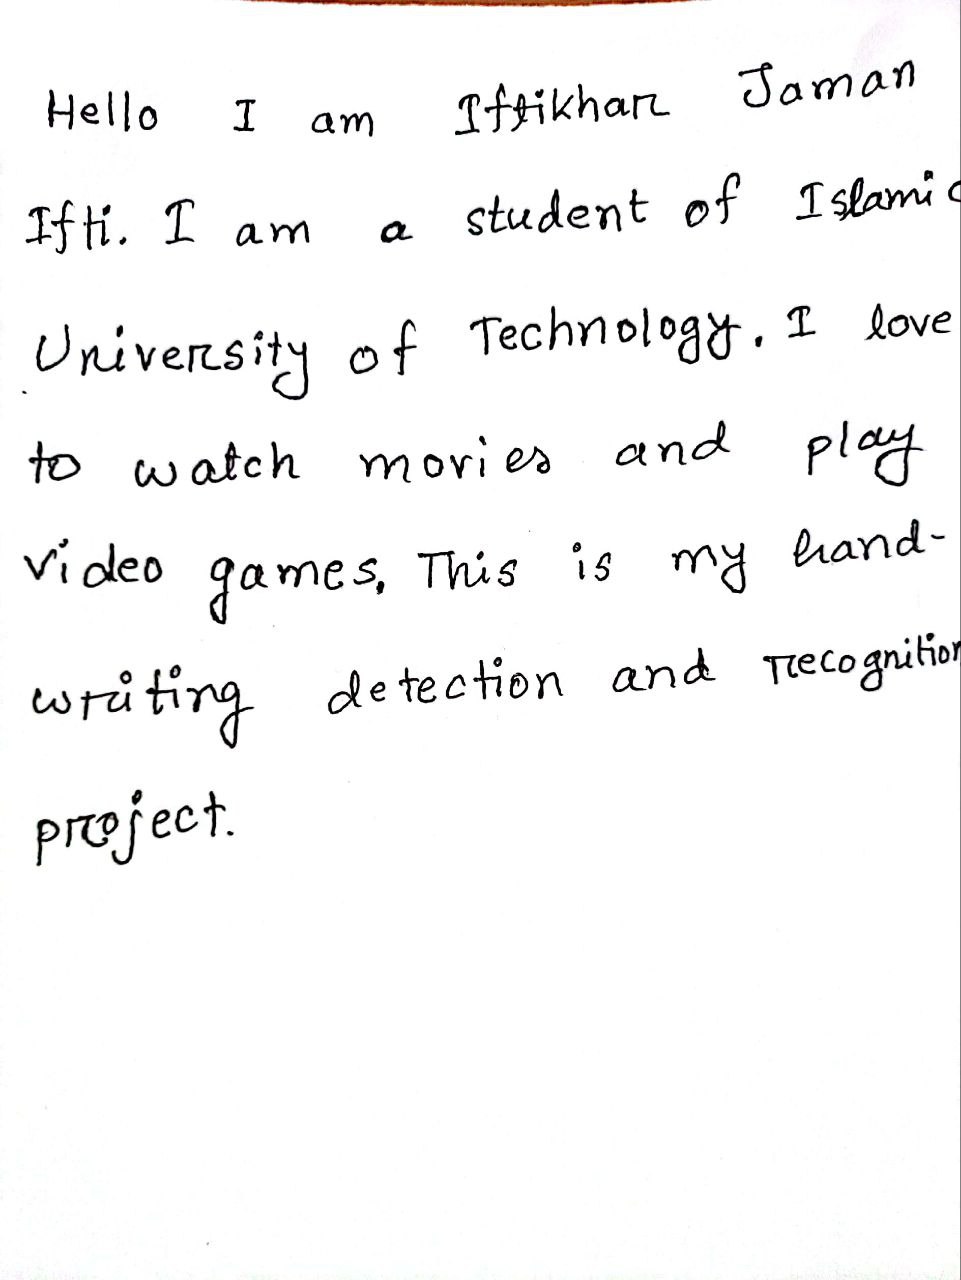 Hello I am Iftikhar Jaman
Ifti. I am a student of Islamic
University of Technology. I love
to watch movies and play
video games. This is my hand-
writing detection and recognition
project.